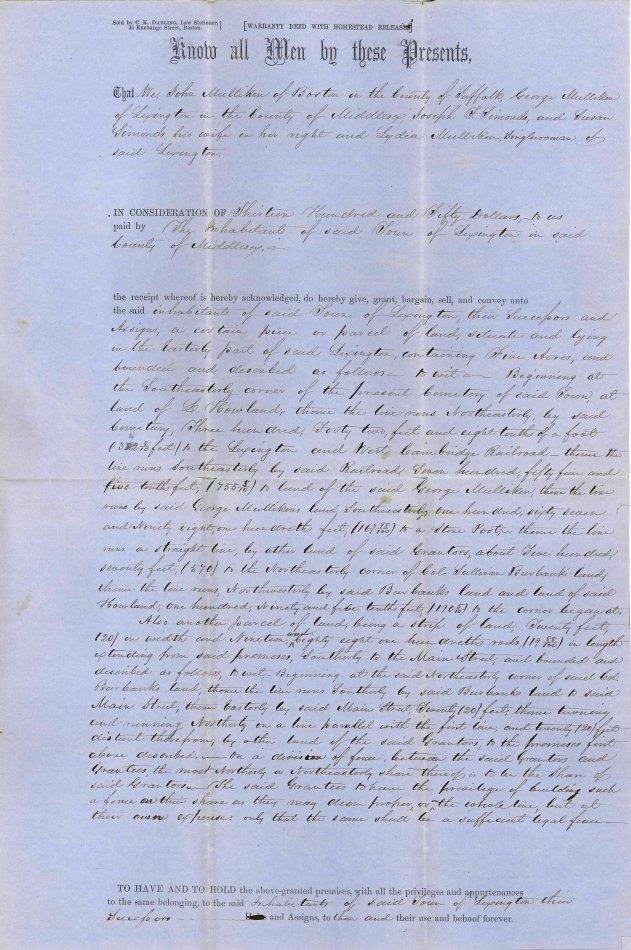 Sold by C. K. DARLING, Law Stationer,
15 Exchange Street, Boston.
[WARRANTY DEED WITH HOMESTEAD RELEASE]
Know all Men by these Presents,
That We, John Mulliken of Boston in the County of Suffolk, George Mulliken
of Lexington in the County of Middlesex, Joseph F. Simonds, and Susan
Simonds, his wife in her right and Lydia Mulliken, Singlewoman of
said Lexington
IN CONSIDERATION OF Thirteen Hundred and Fifty Dollars, to us
paid by The Inhabitants of said Town of Lexington in said
County of Middlesex,
the receipt whereof is hereby acknowledged, do hereby give, grant, bargain, sell, and convey unto
the said inhabitants of said Town of Lexington, their Successors and
Assigns, a certain piece or parcel of land, situate and lying
in the Easterly part of said Lexington, containing Five Acres, and
bounded and described as follows - to wit - Beginning at
the Southeasterly corner of the present Cemetery of said Town, at
land of Howland; thence the line runs Northeasterly, by said
Cemetery, Three hundred, Forty two, feet and eight tenths of a foot
(342 8/10 feet) to the Lexington and West Cambridge Railroad - thence the
line runs Southeasterly by said Railroad, Seven hundred, fifty five and
five tenths feet, (755 5/10) to land of the said George Mulliken; thence the line
runs by said George Mullikens land, Southwesterly one hundred, sixty seven
and Ninety eight, one hundreth feet, (167 98/100) to a Stone Post; - thence the line
runs a straight line, by other land of said Grantors, about Five hundred,
seventy feet, (570) to the Northeasterly corner of Col. Sullivan Burbanks land;
thence the line runs, Northwesterly by said Burbanks land and land of said
Howland, one hundred, Ninety and five tenths feet, (190 5/10) to the corner began at.
Also another parcel of land, being a strip of land, Twenty feet,
(20) in width and Nineteen and eighty eight one hundredths rods, (19 88/100) in length
extending from said premises, Southerly to the Main Street, and bounded and
described as follows, to wit, Beginning at the said Northeasterly corner of said Col.
Burbanks land, thence the line runs Southerly by said Burbank land to said
Main Street, thence Easterly by said Main Street Twenty (20) feet; thence turning
and running Northerly on a line parallel with the first line, and twenty (20) feet
distant therefrom, by other land of the said Grantors, to the premises first
above described. - On a division of fence, between the said Grantors and
Grantees, the most Northerly or Northeasterly share thereof is to be the Share of
said Grantors - The said Grantees to have the privilege of building such
a fence on their share as they may deem proper, or the whole line, but at
their own expense: only that the same shall be a sufficient legal fence -
TO HAVE AND TO HOLD the above-granted premises, with all the privileges and appurtenances
to the same belonging, to the said Inhabitants of said Town of Lexington their
Successors and Assigns, to them and their use and behoof forever.